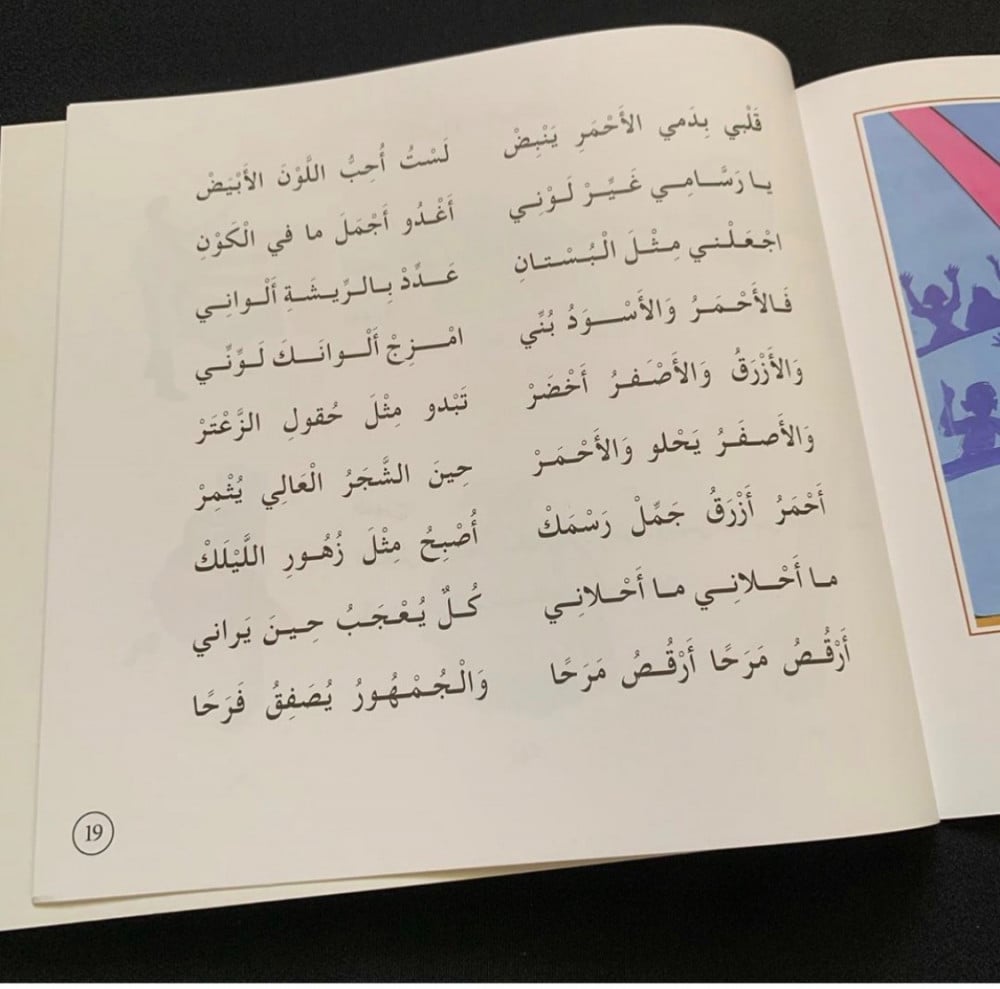 قَلْبي بِدَمي الأَحْمَرِ يَنْبِضْ لَسْتُ أُحِبُّ اللَّوْنَ الأَبْيَضْ
يا رَسَّامِي غَيِّرْ لَوْنِي أَغْدُو أَجْمَلَ ما في الْكَوْنِ
اجْعَلْني مِثْلَ الْبُسْتانِ عَدِّدْ بِالرِّيشَةِ أَلْوانِي
فَالأَحْمَرُ وَالأَسْوَدُ بُنِّي امْزِجْ أَلْوانَكَ لَوِّنِّي
وَالأَزْرَقُ وَالأَصْفَرُ أَخْضَرْ تَبْدو مِثْلَ حُقولِ الزَّعْتَرْ
وَالأَصفَرُ يَحْلو وَالأَحْمَرْ حِينَ الشَّجَرُ الْعَالِي يُثْمِرْ
أَحْمَرُ أَزْرَقُ جَمِّلْ رَسْمَكْ أُصْبِحُ مِثْلَ زُهُورِ اللَّيْلَكْ
ما أَحْلانِي ما أَحْلانِي كُلٌّ يُعْجَبُ حِينَ يَراني
أَرْقُصُ مَرَحًا أَرْقُصُ مَرَحًا وَالْجُمْهُورُ يُصَفِقُ فَرَحًا
19